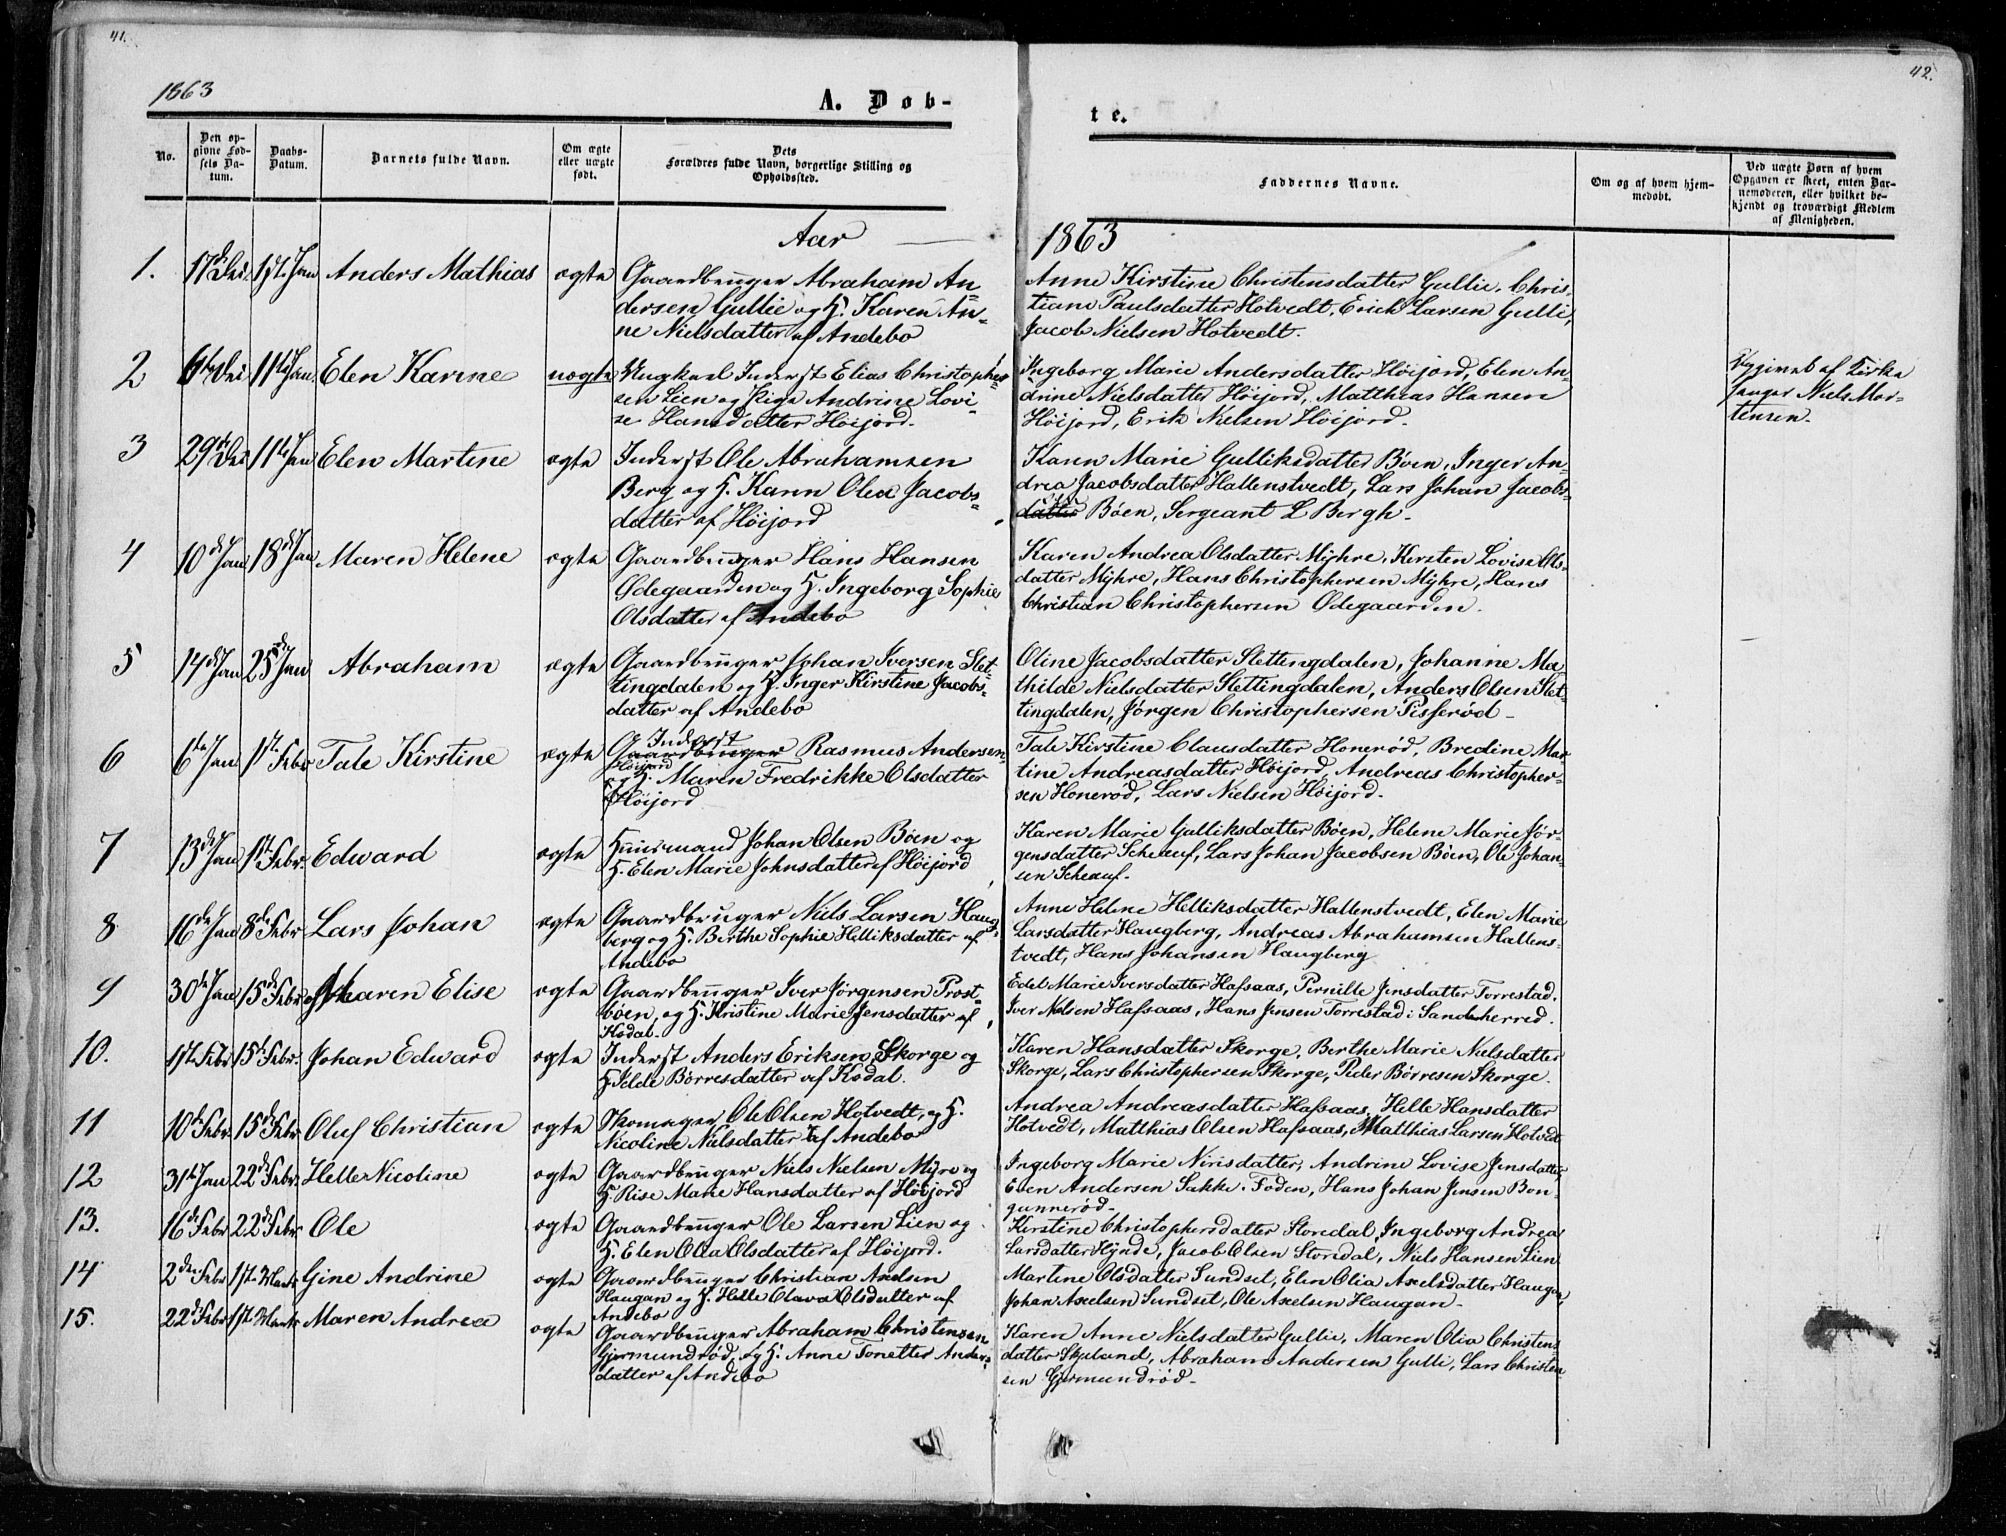 41.
42.
1863
A. Døb-
te.
No.
Den op-
givne Fød-
sels Da-
tum.
Daabs-
Datum.
Barnets fulde Navn.
Om ægte
eller uægte
født.
Dets
Forældres fulde Navn, borgerlige Stilling og
Opholdssted.
Faddernes Navne.
Om og af hvem hjem-
medøbt.
Ved uægte Børn af hvem
Opgaven er skeet, enten Bar-
nemoderen, eller hvilket be-
kjendt og troværdigt Medlem
af Menigheden.
Aar
1863
1. 17de Dec. 1st. Jan Anders Mathias ægte Gaardbruger Abraham An-
dersen Gullie og H. Karen An-
ne Nielsdatter af Andebo
Anne Kirstine Christensdatter Gullie, Chris-
tiane Paulsdatter Hotvedt, Erich Larsen Gulli,
Jacob Nielsen Hotvedt.
2 6te Dec 11te Jan. Elen Karine uægte Ungkarl Inderst Elias Christopher-
sen Lien og Pige Andrine Lovi-
se Hansdatter Höijord.
Ingeborg Marie Andersdatter Höijord, Elen An-
drine Nielsdatter Höijord, Matthias Hansen
Höijord, Erik Nielsen Höijord.
Opgivet af Kirke
sanger Niels Mor-
tensen.
3 29de Dec 11te Jan Elen Martine ægte Inderst Ole Abrahamsen
Berg og H. Karen Olea Jacobs-
datter af Höijord
Karen Marie Gulliksdatter Böen, Inger An-
drea Jacobsdatter Hallenstvedt, Lars Johan Jacobs-
datter Böen, Sergeant L Bergh.
4 10de Jan 18de Jan Maren Helene ægte Gaardbruger Hans Hansen
Ödegaarden og H. Ingeborg Sophie
Olsdatter af Andebo
Karen Andrea Olsdatter Myhre, Kirsten Lovise Ols-
datter Myhre, Hans Christophersen Myhre, Hans
Christian Christophersen Ödegaarden.
5 14de Jan 25de Jan Abraham ægte Gaardbruger Johan Iversen Slet-
tingdalen og H. Inger Kirstine Jacobs-
datter af Andebo
Oline Jacobsdatter Slettingdalen, Johanne Ma-
thilde Nielsdatter Slettingdalen, Anders Olsen Slet-
tingdalen, Jörgen Christophersen Pisseröd
6 6te Jan 1ste Febr Tale Kirstine ægte Inderst
Gaardbruger Rasmus Andersen
Höijord
og H. Maren Fredrikke Olsdatter
Höijord
Tale Kirstine Clausdatter Honeröd, Bredine Mar-
tine Andreasdatter Höijord, Andreas Christopher-
sen Honeröd, Lars Nielsen Höijord.
7 13de Jan 1ste Febr. Edward ægte Huusmand Johan Olsen Böen og
H. Elen Marie Johnsdatter af Höijord
Karen Marie Gulliksdatter Böen, Helene Marie Jör-
gensdatter Scheauf, Lars Johan Jacobsen Böen, Ole Johan-
sen Scheauf.
8 16de Jan 8de Febr Lars Johan ægte Gaardbruger Niels Larsen Haug-
berg og H. Berthe Sophie Helliksdatter af
Andebo
Anne Helene Helliksdatter Hallenstvedt, Elen Marie
Larsdatter Haugberg, Andreas Abrahamsen Hallens-
tvedt, Hans Johansen Haugberg
9 30de Jan 15de Febr Maren Elise ægte Gaardbruger Iver Jörgensen Prost-
böen, og H. Kristine Marie Jensdatter af
Kodal.
Edel Marie Iversdatter Hafsaas, Pernille Jensdatter Torrestad.
Iver Nelsen Hafsaas, Hans Jensen Torrestad i Sandeherred.
10. 1ste Febr 15de Febr. Johan Edward ægte Inderst Anders Eriksen Skorge og
H. Ilde Börresdatter af Kodal.
Karen Hansdatter Skorge, Berthe Marie Nielsdatter
Skorge, Lars Christophersen Skorge, Peder Börresen Skorge.
11 10de Febr. 15de Febr. Oluf Christian ægte Skomager Ole Olsen Hotvedt, og H.
Nicoline Nielsdatter af Andebo
Andrea Andreasdatter Hafsaas, Helle Hansdatter
Hotvedt, Matthias Olsen Hafsaas, Matthias Larsen Hotvedt
12 31te Jan 22de Febr. Helle Nicoline ægte Gaardbruger Niels Nielsen Myre og
H. Rise Marie Hansdatter af Höijord
Ingeborg Marie Nirisdatter, Andrine Lovise Jensdatter,
Even Andersen Sukke. Foden, Hans Johan Jensen Bon-
gunneröd.
13. 16de Febr 22de Febr. Ole ægte Gaardbruger Ole Larsen Lien og
H. Elen Olia Olsdatter af Höijord.
Kirstine Christophersdatter Storedal, Ingeborg Andrea
Larsdatter Hynde, Jacob Olsen Storedal, Niels Hansen Lien
14 2den Febr 1st. Marts Gine Andrine ægte Gaardbruger Christian Axelsen
Haugan og H. Helle Olava Olsdatter af
Andebo
Martine Olsdatter Sundset, Elen Olia Axelsdatter Haugan,
Johan Axelsen Sundset, Ole Axelsen Haugan.
15. 22de Febr 1st Marts Maren Andrea ægte Gaardbruger Abraham Christensen
Gjermundröd, og H. Anne Tonette Anders-
datter af Andebo
Karen Anne Nielsdatter Gullie, Maren Olia Christens
datter Skjeland, Abraham Andersen Gulli, Lars Christen
sen Gjermundröd.